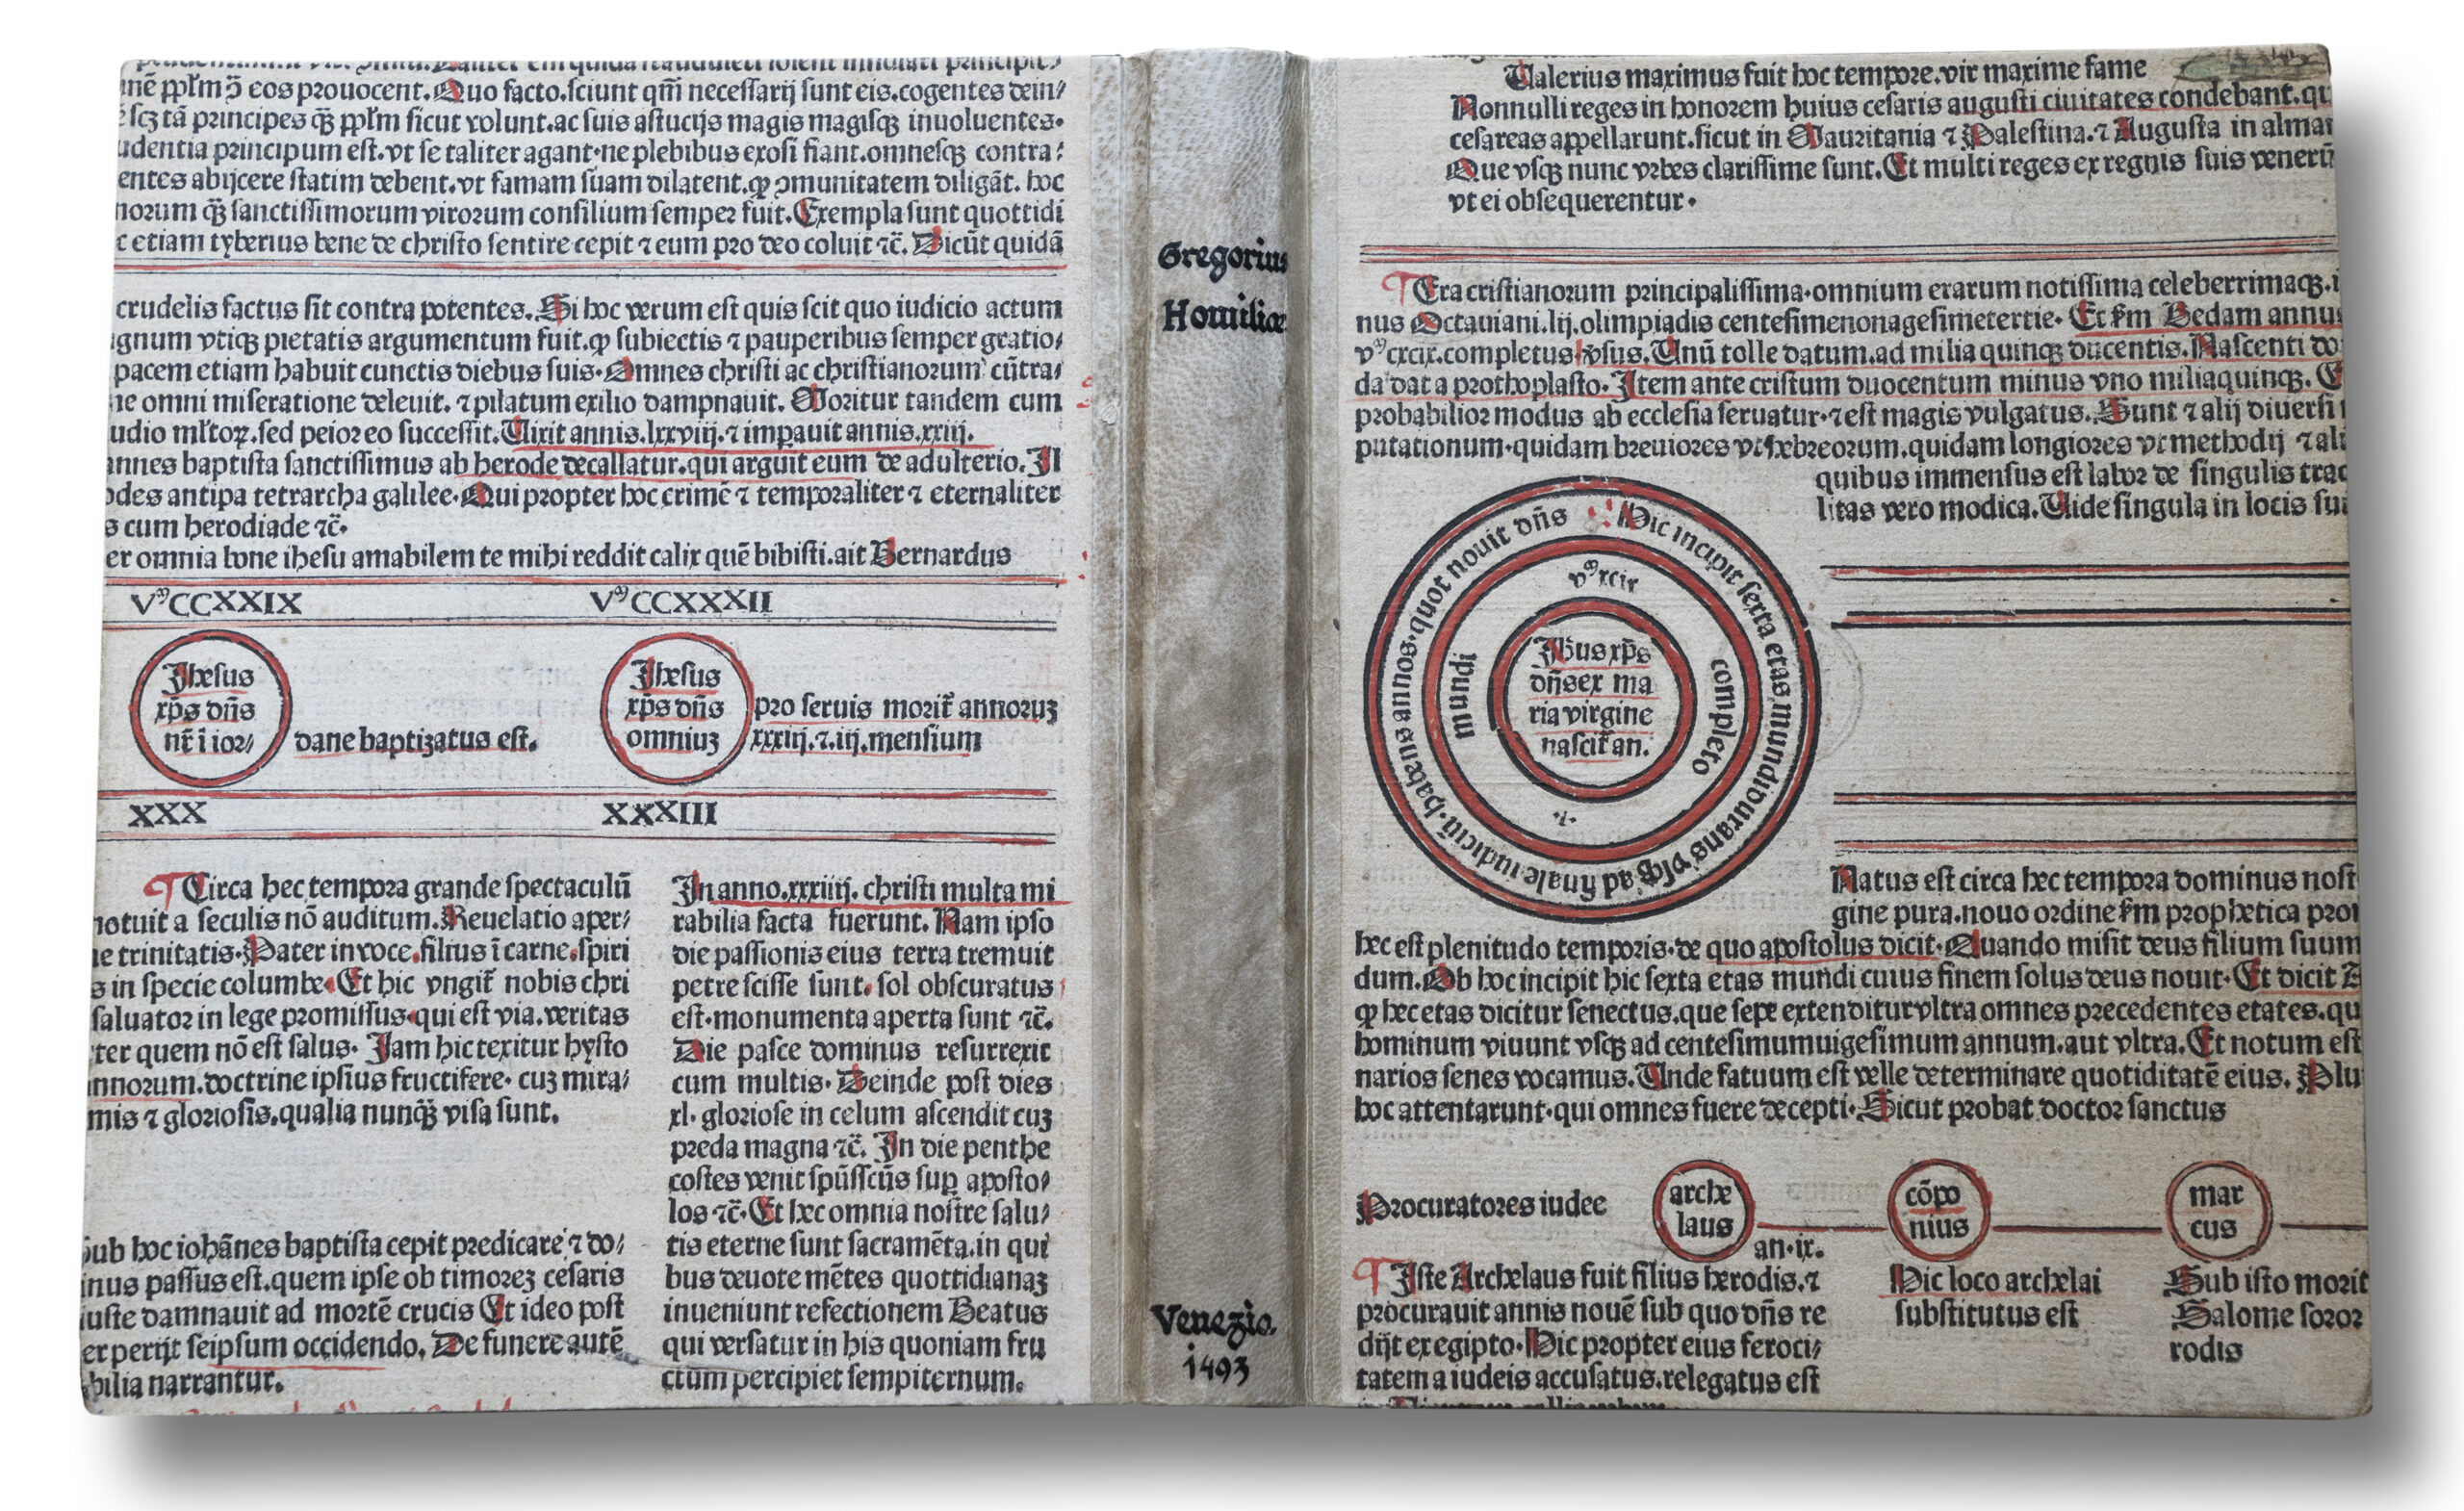 mē ppłm ꝫ eos prouocent. Quo facto. sciunt qm̄ necessarij sunt eis. cogentes dein/
scꝫ tā principes qꝫ ppłm sicut volunt. ac suis astucijs magis magisqꝫ inuoluentes.
udentia principum est. vt se taliter agant. ne plebibus exosi fiant. omnesqꝫ contra:
entes abijcere statim debent. vt famam suam dilatent. ꝙ ꝯmunitatem diligāt. hoc
norum qꝫ sanctissimorum virorum consilium semper fuit. Exempla sunt quottidi
c etiam tyberius bene de christo sentire cepit ⁊ eum pro deo coluit ⁊c̄. Dicūt quidā
crudelis factus sit contra potentes. Si hoc verum est quis scit quo iudicio actum
gnum vtiqꝫ pietatis argumentum fuit. ꝙ subiectis ⁊ pauperibus semper gratio/
pacem etiam habuit cunctis diebus suis. Omnes christi ac christianorum cūtra/
ne omni miseratione deleuit. ⁊ pilatum exilio dampnauit. Moritur tandem cum
udio mltoꝝ. sed peior eo successit. Uixit annis. lxxviij. ⁊ imꝑauit annis. xxiij.
nnes baptista sanctissimus ab herode decallatur. qui arguit eum de adulterio. Il
odes antipa tetrarcha galilee. Qui propter hoc crimē ⁊ temporaliter ⁊ eternaliter
s cum herodiade ⁊c̄.
er omnia bone ihesu amabilem te mihi reddit calix quē bibisti. ait Bernardus
VᵐCCXXIX VᵐCCXXXII
Jhesus
xp̄s dn̄s
nr̄ ī ior/
dane baptiꝫatus est.
Jhesus
xp̄s dn̄s
omniuꝫ
pro seruis morit̄ annoruꝫ
xxxiij. ⁊. iij. mensium
XXX XXXIII
Circa hec tempora grande spectaculū
notuit a seculis nō auditum. Reuelatio aper/
e trinitatis. Pater in voce. filius ī carne. spiri
s in specie columbe. Et hic vngit̄ nobis chri
saluator in lege promissus. qui est via. veritas
ter quem nō est salus. Jam hic texitur hysto
nnorum. doctrine ipsius fructifere. cuꝫ mira/
mis ⁊ gloriosis. qualia nunqꝫ visa sunt.
Sub hoc iohānes baptista cepit predicare ⁊ do/
inus passus est. quem ipse ob timoreꝫ cesaris
iuste damnauit ad mortē crucis Et ideo post
er perijt seipsum occidendo. De funere autē
bilia narrantur.
In anno. xxxiiij. christi multa mi
rabilia facta fuerunt. Nam ipso
die passionis eius terra tremuit
petre scisse sunt. sol obscuratus
est. monumenta aperta sunt ⁊c̄.
Die pasce dominus resurrexit
cum multis. Deinde post dies
xl. gloriose in celum ascendit cuꝫ
preda magna ⁊c̄. In die penthe
costes venit spūsscūs suꝑ aposto/
los ⁊c̄. Et hec omnia nostre salu/
tis eterne sunt sacramēta. in qui
bus deuote mētes quottidianaꝫ
inueniunt refectionem Beatus
qui versatur in his quoniam fru
ctum percipiet sempiternum.
Gregorius
Homiliæ
Venezia.
1493
Valerius maximus fuit hoc tempore. vir maxime fame
Nonnulli reges in honorem huius cesaris augusti ciuitates condebant. qu
cesareas appellarunt. sicut in Mauritania ⁊ Palestina. ⁊ Augusta in alman
Que vsqꝫ nunc vrbes clarissime sunt. Et multi reges ex regnis suis venerūt
vt ei obsequerentur.
Era cristianorum principalissima. omnium erarum notissima celeberrimaqꝫ. i
nus Octauiani. lij. olimpiadis centesimenonagesimetertie. Et ẜm Bedam annus
vᵐcxcix. completus. Unū tolle datum. ad milia quinqꝫ ducentis. Nascenti do
da dat a prothoplasto. Item ante cristum duocentum minus vno miliaquinqꝫ. E
probabilior modus ab ecclesia seruatur. ⁊ est magis vulgatus. Sunt ⁊ alij diuersi
putationum. quidam breuiores vt hebreorum. quidam longiores vt methodij ⁊ ali
quibus immensus est labor de singulis trac
litas vero modica. Uide singula in locis sui
Hic incipit sexta etas mundi durans vsqꝫ ad finale iudiciū. habens annos. quot nouit dn̄s
vᵐxcix
completo
.⁊.
mundi
Jh̄us xp̄s
dn̄s ex ma
ria virgine
nascit̄ an.
Natus est circa hec tempora dominus nost
gine pura. nouo ordine ẜm prophetica pro
hec est plenitudo temporis. de quo apostolus dicit. Quando misit deus filium suum
dum. Ob hoc incipit hic sexta etas mundi cuius finem solus deus nouit. Et dicit
ꝙ hec etas dicitur senectus. que sepe extenditur vltra omnes precedentes etates. qu
hominum viuunt vsqꝫ ad centesimumuigesimum annum. aut vltra. Et notum est
narios senes vocamus. Unde fatuum est velle determinare quotiditatē eius. Plu
hoc attentarunt. qui omnes fuere decepti. Sicut probat doctor sanctus
Procuratores iudee
arche
laus
an. ix.
cōpo
nius
mar
cus
Iste Archelaus fuit filius herodis. ⁊
procurauit annis nouē sub quo dn̄s re
dijt ex egipto. Hic propter eius feroci/
tatem a iudeis accusatus. relegatus est
Hic loco archelai
substitutus est
Sub isto morit
Salome soror
rodis